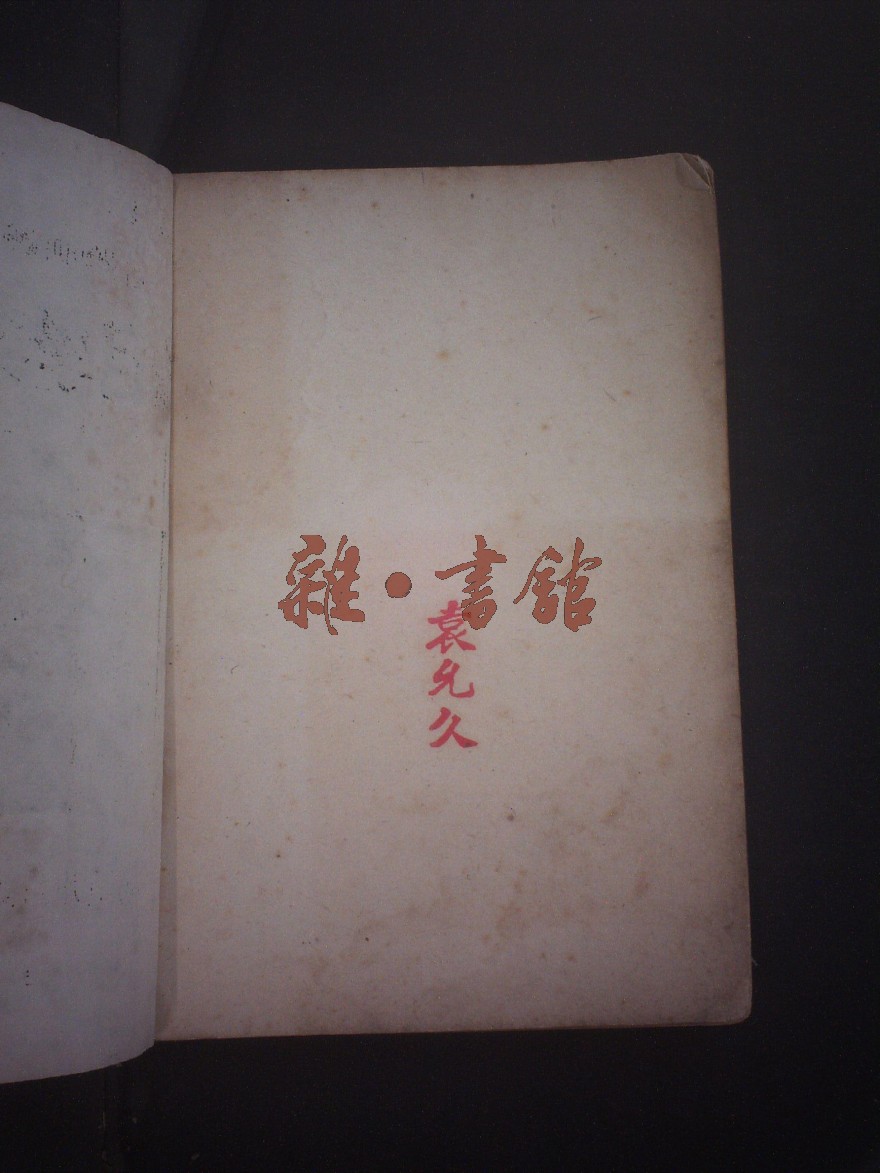 雜·書館
袁允久